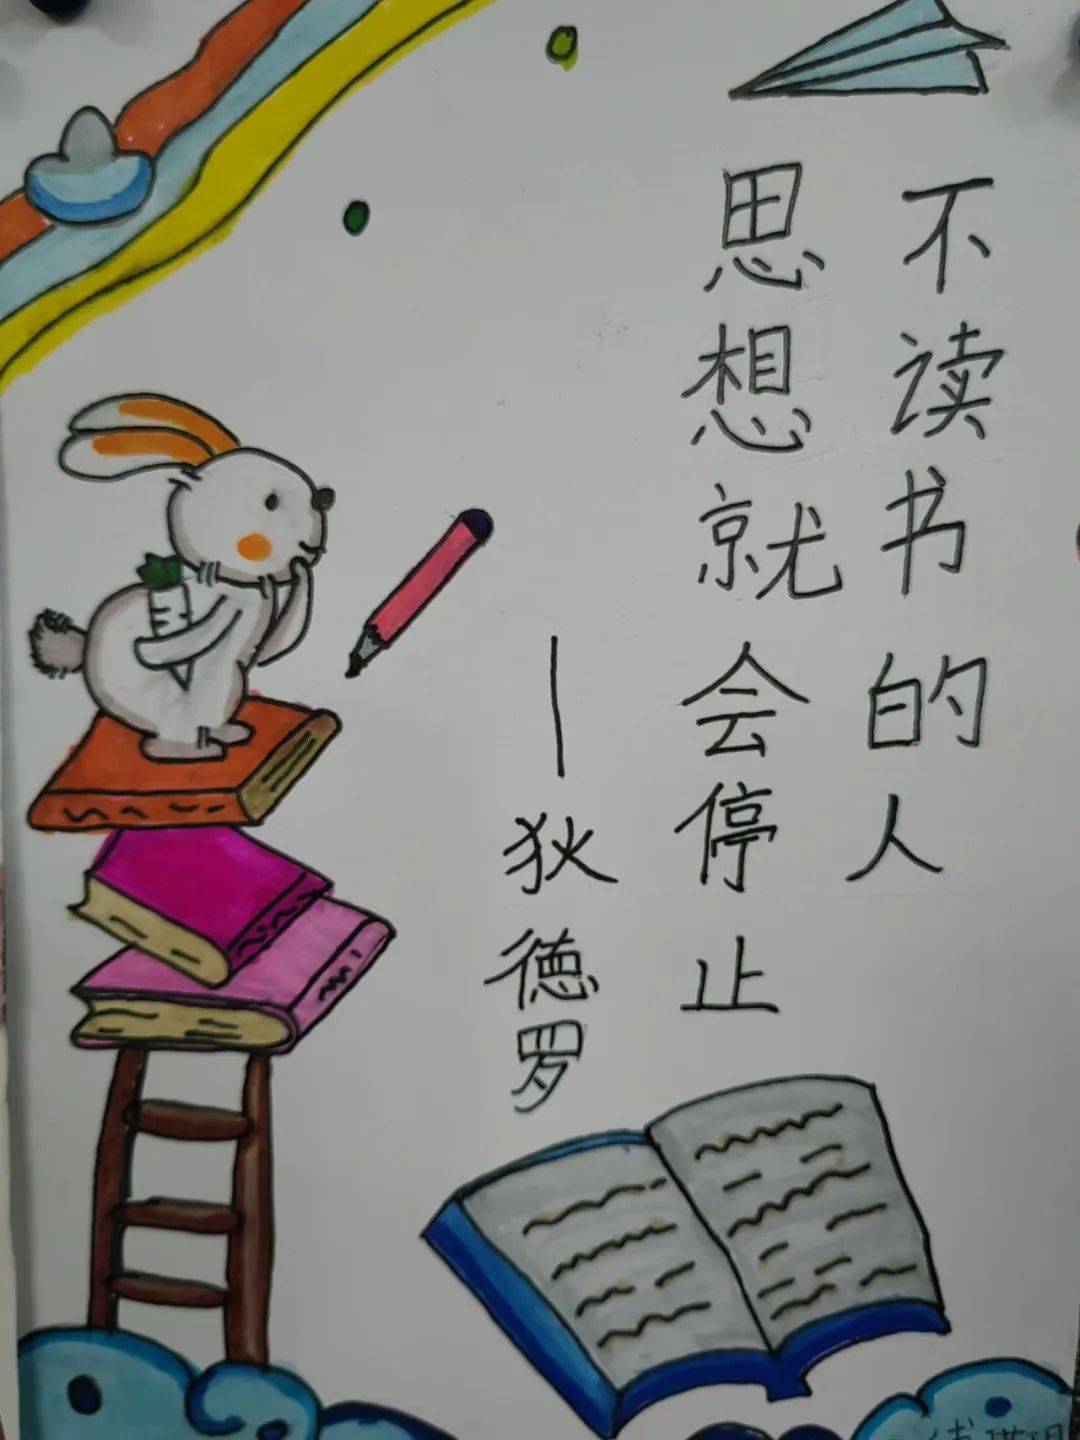 不读书的人
思想就会停止
—狄德罗